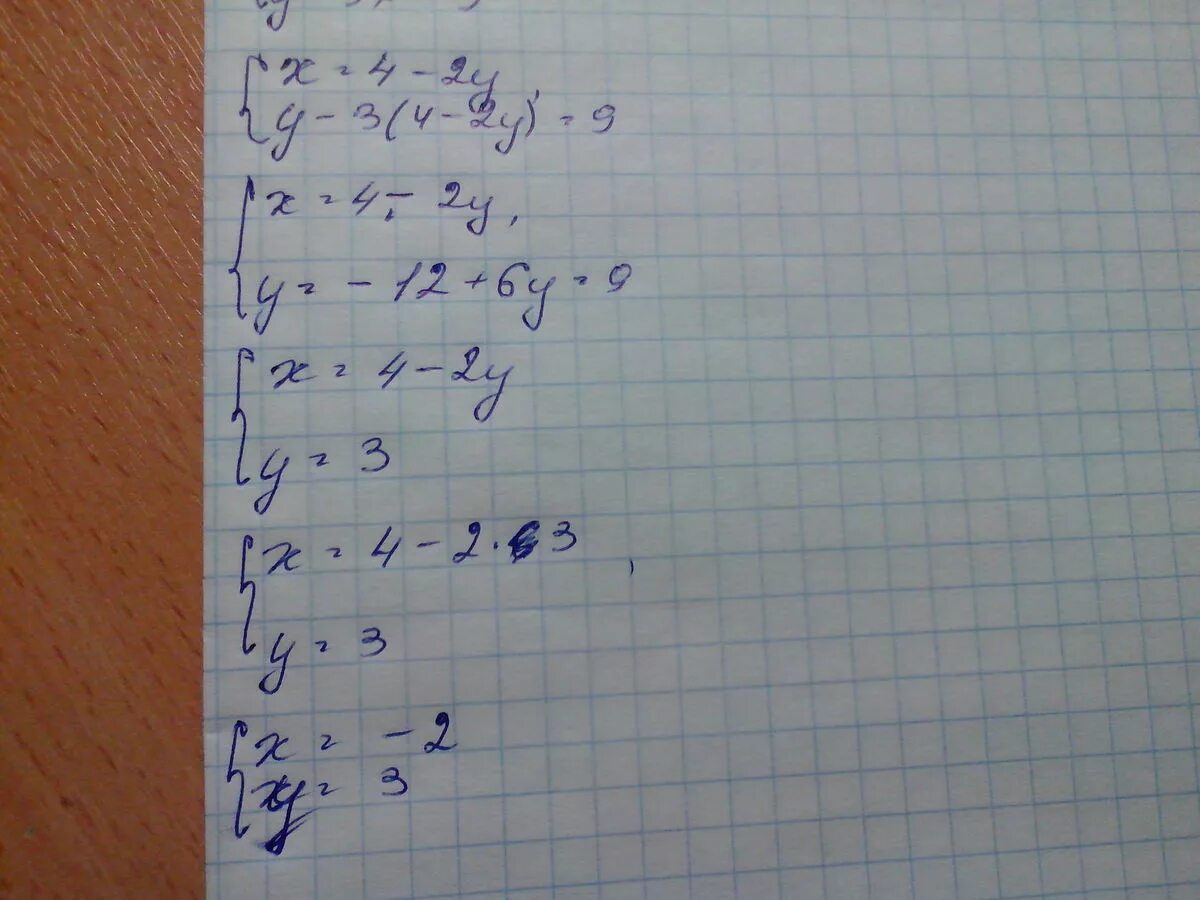 x = 4 - 2y,
y - 3(4 - 2y) = 9
x = 4 - 2y,
y = - 12 + 6y = 9
x = 4 - 2y
y = 3
x = 4 - 2 · 3,
y = 3
x = - 2
y = 3